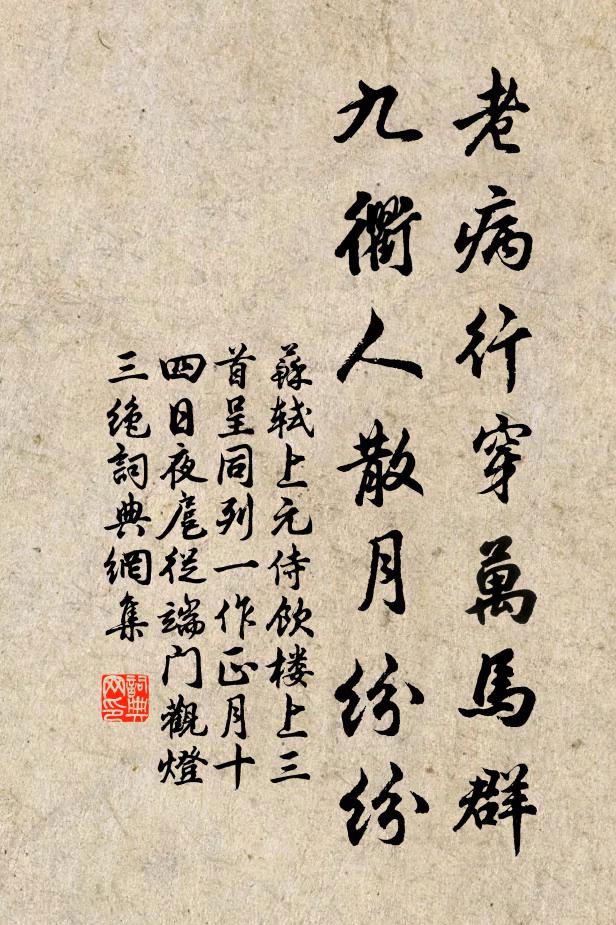 老病行穿萬馬群
九衢人散月紛紛
蘇軾上元侍飲楼上三
首呈同列一作正月十
四日夜扈從端门觀燈
三绝詞典網集
詞典
网印